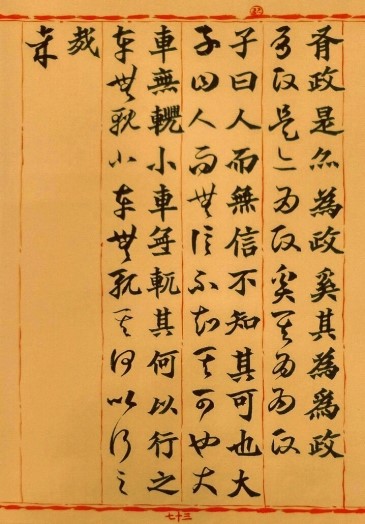 有政是亦為政奚其為為政
有政是亦為政奚其為為政
子曰人而無信不知其可也大
子曰人而無信不知其可也大
車無輗小車無軏其何以行之
車無輗小車無軏其何以行之
哉
哉
七十三